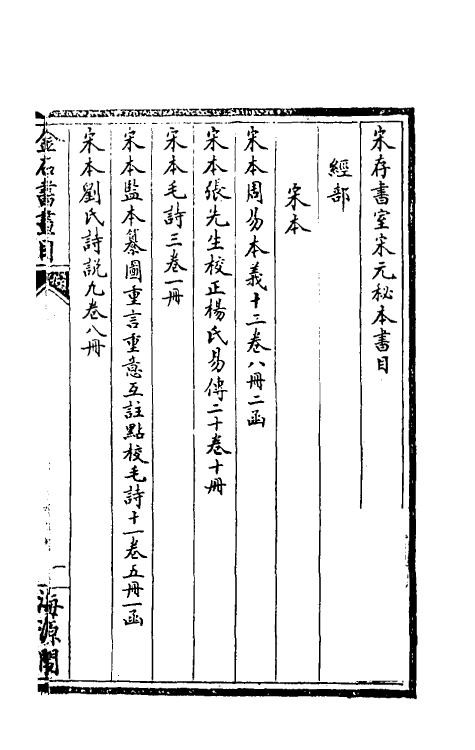 宋存書室宋元秘本書目
經部
宋本
宋本周易本義十二卷八冊二函
宋本張先生校正楊氏易傳二十卷十冊
宋本毛詩三卷一冊
宋本監本纂圖重言重意互註點校毛詩十一卷五冊一函
宋本劉氏詩說九卷八冊
金石書畫目
海源閣